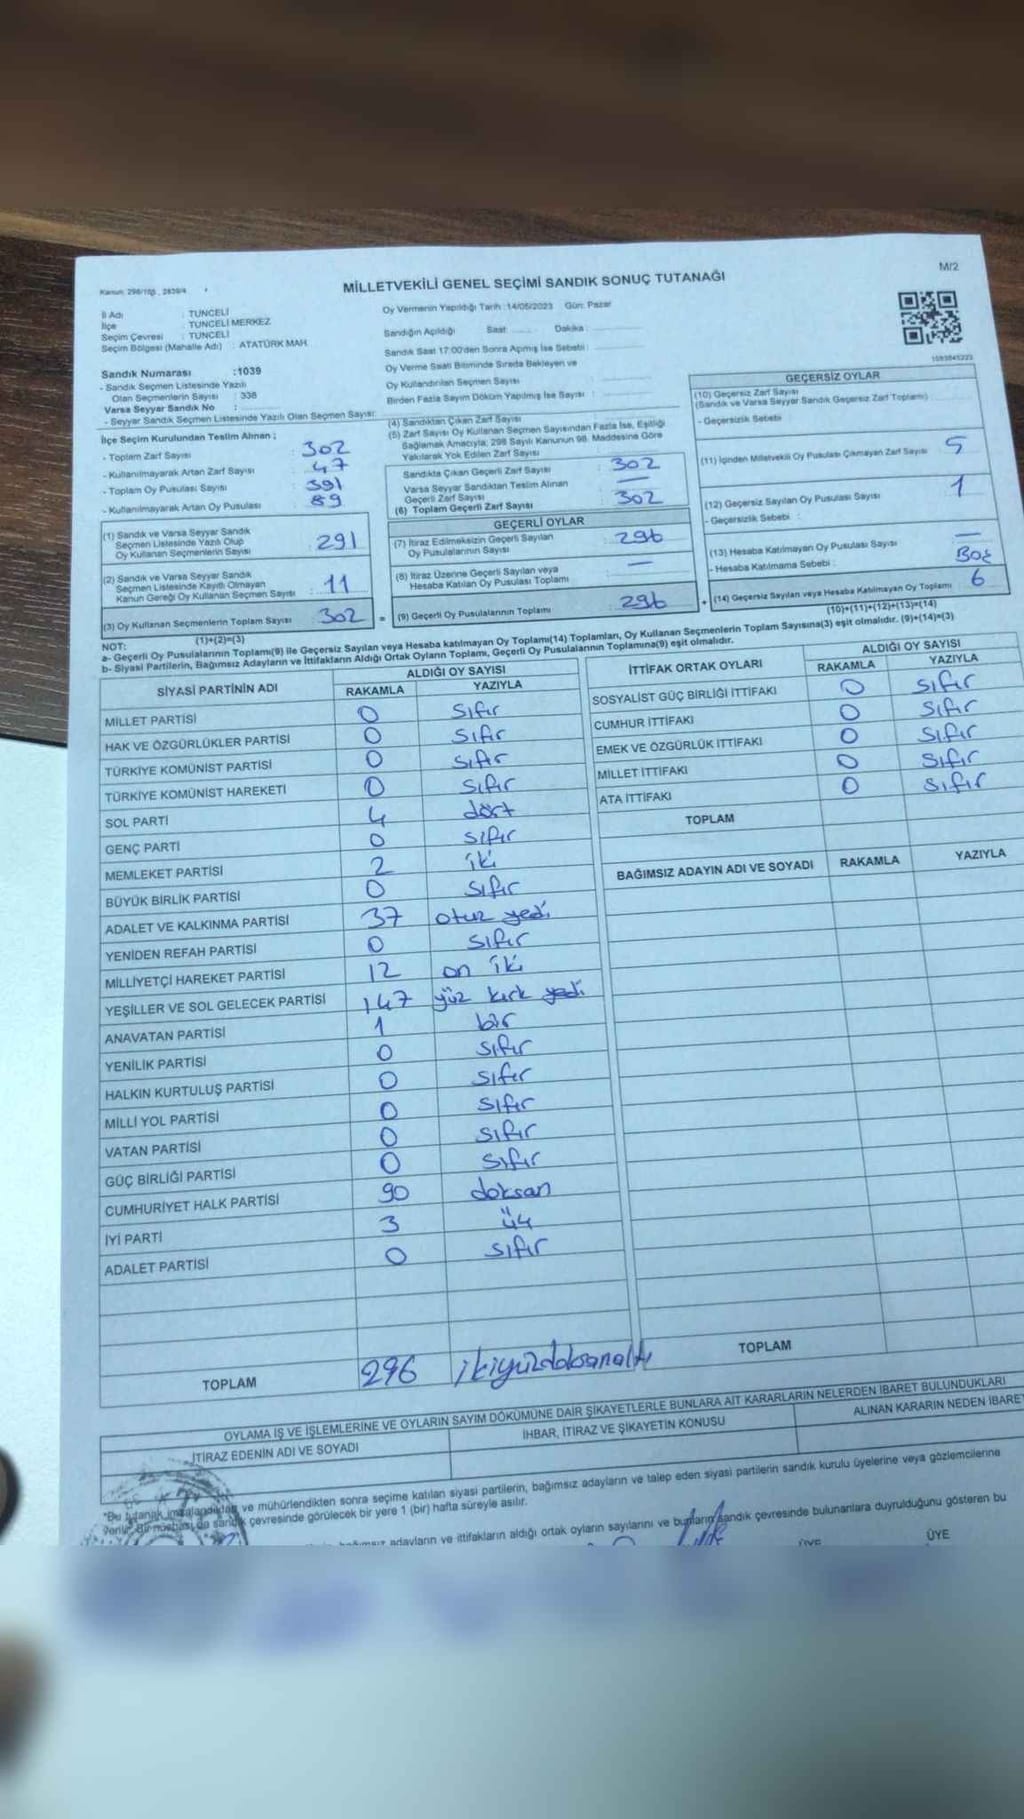 M/2
Kanun: 298/105, 2839/4
MİLLETVEKİLİ GENEL SEÇİMİ SANDIK SONUÇ TUTANAĞI
İl Adı : TUNCELİ
İlçe : TUNCELİ MERKEZ
Seçim Çevresi : TUNCELİ
Seçim Bölgesi (Mahalle Adı) : ATATÜRK MAH.
Oy Vermenin Yapıldığı Tarih : 14/05/2023 Gün: Pazar
Sandığın Açıldığı Saat: Dakika:
Sandık Saat 17:00'den Sonra Açmış İse Sebebi :
Oy Verme Saati Bitiminde Sırada Bekleyen ve
Oy Kullandırılan Seçmen Sayısı :
Birden Fazla Sayım Döküm Yapılmış İse Sayısı :
Sandık Numarası :1039
- Sandık Seçmen Listesinde Yazılı
Olan Seçmenlerin Sayısı : 338
Varsa Seyyar Sandık No :
- Seyyar Sandık Seçmen Listesinde Yazılı Olan Seçmen Sayısı:
İlçe Seçim Kurulundan Teslim Alınan ;
- Toplam Zarf Sayısı : 302
- Kullanılmayarak Artan Zarf Sayısı : 47
- Toplam Oy Pusulası Sayısı : 391
- Kullanılmayarak Artan Oy Pusulası : 89
(1) Sandık ve Varsa Seyyar Sandık
Seçmen Listesinde Yazılı Olup
Oy Kullanan Seçmenlerin Sayısı : 291
(2) Sandık ve Varsa Seyyar Sandık
Seçmen Listesinde Kayıtlı Olmayan
Kanun Gereği Oy Kullanan Seçmen Sayısı : 11
(3) Oy Kullanan Seçmenlerin Toplam Sayısı : 302
(1)+(2)=(3)
(4) Sandıktan Çıkan Zarf Sayısı
(5) Zarf Sayısı Oy Kullanan Seçmen Sayısından Fazla İse, Eşitliği
Sağlamak Amacıyla; 298 Sayılı Kanunun 98. Maddesine Göre
Yakılarak Yok Edilen Zarf Sayısı
Sandıkta Çıkan Geçerli Zarf Sayısı : 302
Varsa Seyyar Sandıktan Teslim Alınan
Geçerli Zarf Sayısı : —
(6) Toplam Geçerli Zarf Sayısı : 302
GEÇERLİ OYLAR
(7) İtiraz Edilmeksizin Geçerli Sayılan
Oy Pusulalarının Sayısı : 296
(8) İtiraz Üzerine Geçerli Sayılan veya
Hesaba Katılan Oy Pusulası Toplamı : —
= (9) Geçerli Oy Pusulalarının Toplamı : 296
GEÇERSİZ OYLAR
(10) Geçersiz Zarf Sayısı
(Sandık ve Varsa Seyyar Sandık Geçersiz Zarf Toplamı)
- Geçersizlik Sebebi :
(11) İçinden Milletvekili Oy Pusulası Çıkmayan Zarf Sayısı : 5
(12) Geçersiz Sayılan Oy Pusulası Sayısı : 1
- Geçersizlik Sebebi :
(13) Hesaba Katılmayan Oy Pusulası Sayısı : —
- Hesaba Katılmama Sebebi : Boş
+ (14) Geçersiz Sayılan veya Hesaba Katılmayan Oy Toplamı : 6
(10)+(11)+(12)+(13)=(14)
NOT:
a- Geçerli Oy Pusulalarının Toplamı(9) ile Geçersiz Sayılan veya Hesaba katılmayan Oy Toplamı(14) Toplamları, Oy Kullanan Seçmenlerin Toplam Sayısına(3) eşit olmalıdır. (9)+(14)=(3)
b- Siyasi Partilerin, Bağımsız Adayların ve İttifakların Aldığı Ortak Oyların Toplamı, Geçerli Oy Pusulalarının Toplamına(9) eşit olmalıdır.
SİYASİ PARTİNİN ADI ALDIĞI OY SAYISI
RAKAMLA YAZIYLA
MİLLET PARTİSİ 0 sıfır
HAK VE ÖZGÜRLÜKLER PARTİSİ 0 sıfır
TÜRKİYE KOMÜNİST PARTİSİ 0 sıfır
TÜRKİYE KOMÜNİST HAREKETİ 0 sıfır
SOL PARTİ 4 dört
GENÇ PARTİ 0 sıfır
MEMLEKET PARTİSİ 2 iki
BÜYÜK BİRLİK PARTİSİ 0 sıfır
ADALET VE KALKINMA PARTİSİ 37 otuz yedi
YENİDEN REFAH PARTİSİ 0 sıfır
MİLLİYETÇİ HAREKET PARTİSİ 12 on iki
YEŞİLLER VE SOL GELECEK PARTİSİ 147 yüz kırk yedi
ANAVATAN PARTİSİ 1 bir
YENİLİK PARTİSİ 0 sıfır
HALKIN KURTULUŞ PARTİSİ 0 sıfır
MİLLİ YOL PARTİSİ 0 sıfır
VATAN PARTİSİ 0 sıfır
GÜÇ BİRLİĞİ PARTİSİ 0 sıfır
CUMHURİYET HALK PARTİSİ 90 doksan
İYİ PARTİ 3 üç
ADALET PARTİSİ 0 sıfır
TOPLAM 296 ikiyüzdoksanaltı
İTTİFAK ORTAK OYLARI ALDIĞI OY SAYISI
RAKAMLA YAZIYLA
SOSYALİST GÜÇ BİRLİĞİ İTTİFAKI 0 sıfır
CUMHUR İTTİFAKI 0 sıfır
EMEK VE ÖZGÜRLÜK İTTİFAKI 0 sıfır
MİLLET İTTİFAKI 0 sıfır
ATA İTTİFAKI 0 sıfır
TOPLAM
BAĞIMSIZ ADAYIN ADI VE SOYADI RAKAMLA YAZIYLA
TOPLAM
OYLAMA İŞ VE İŞLEMLERİNE VE OYLARIN SAYIM DÖKÜMÜNE DAİR ŞİKAYETLERLE BUNLARA AİT KARARLARIN NELERDEN İBARET BULUNDUKLARI
İTİRAZ EDENİN ADI VE SOYADI İHBAR, İTİRAZ VE ŞİKAYETİN KONUSU ALINAN KARARIN NEDEN İBARET
"Bu tutanak imzalandıktan ve mühürlendikten sonra seçime katılan siyasi partilerin, bağımsız adayların ve talep eden siyasi partilerin sandık kurulu üyelerine veya gözlemcilerine
verilir. Bir nüshası da sandık çevresinde görülecek bir yere 1 (bir) hafta süreyle asılır.
adayların ve ittifakların aldığı ortak oyların sayılarını ve bunların sandık çevresinde bulunanlara duyrulduğunu gösteren bu
ÜYE ÜYE